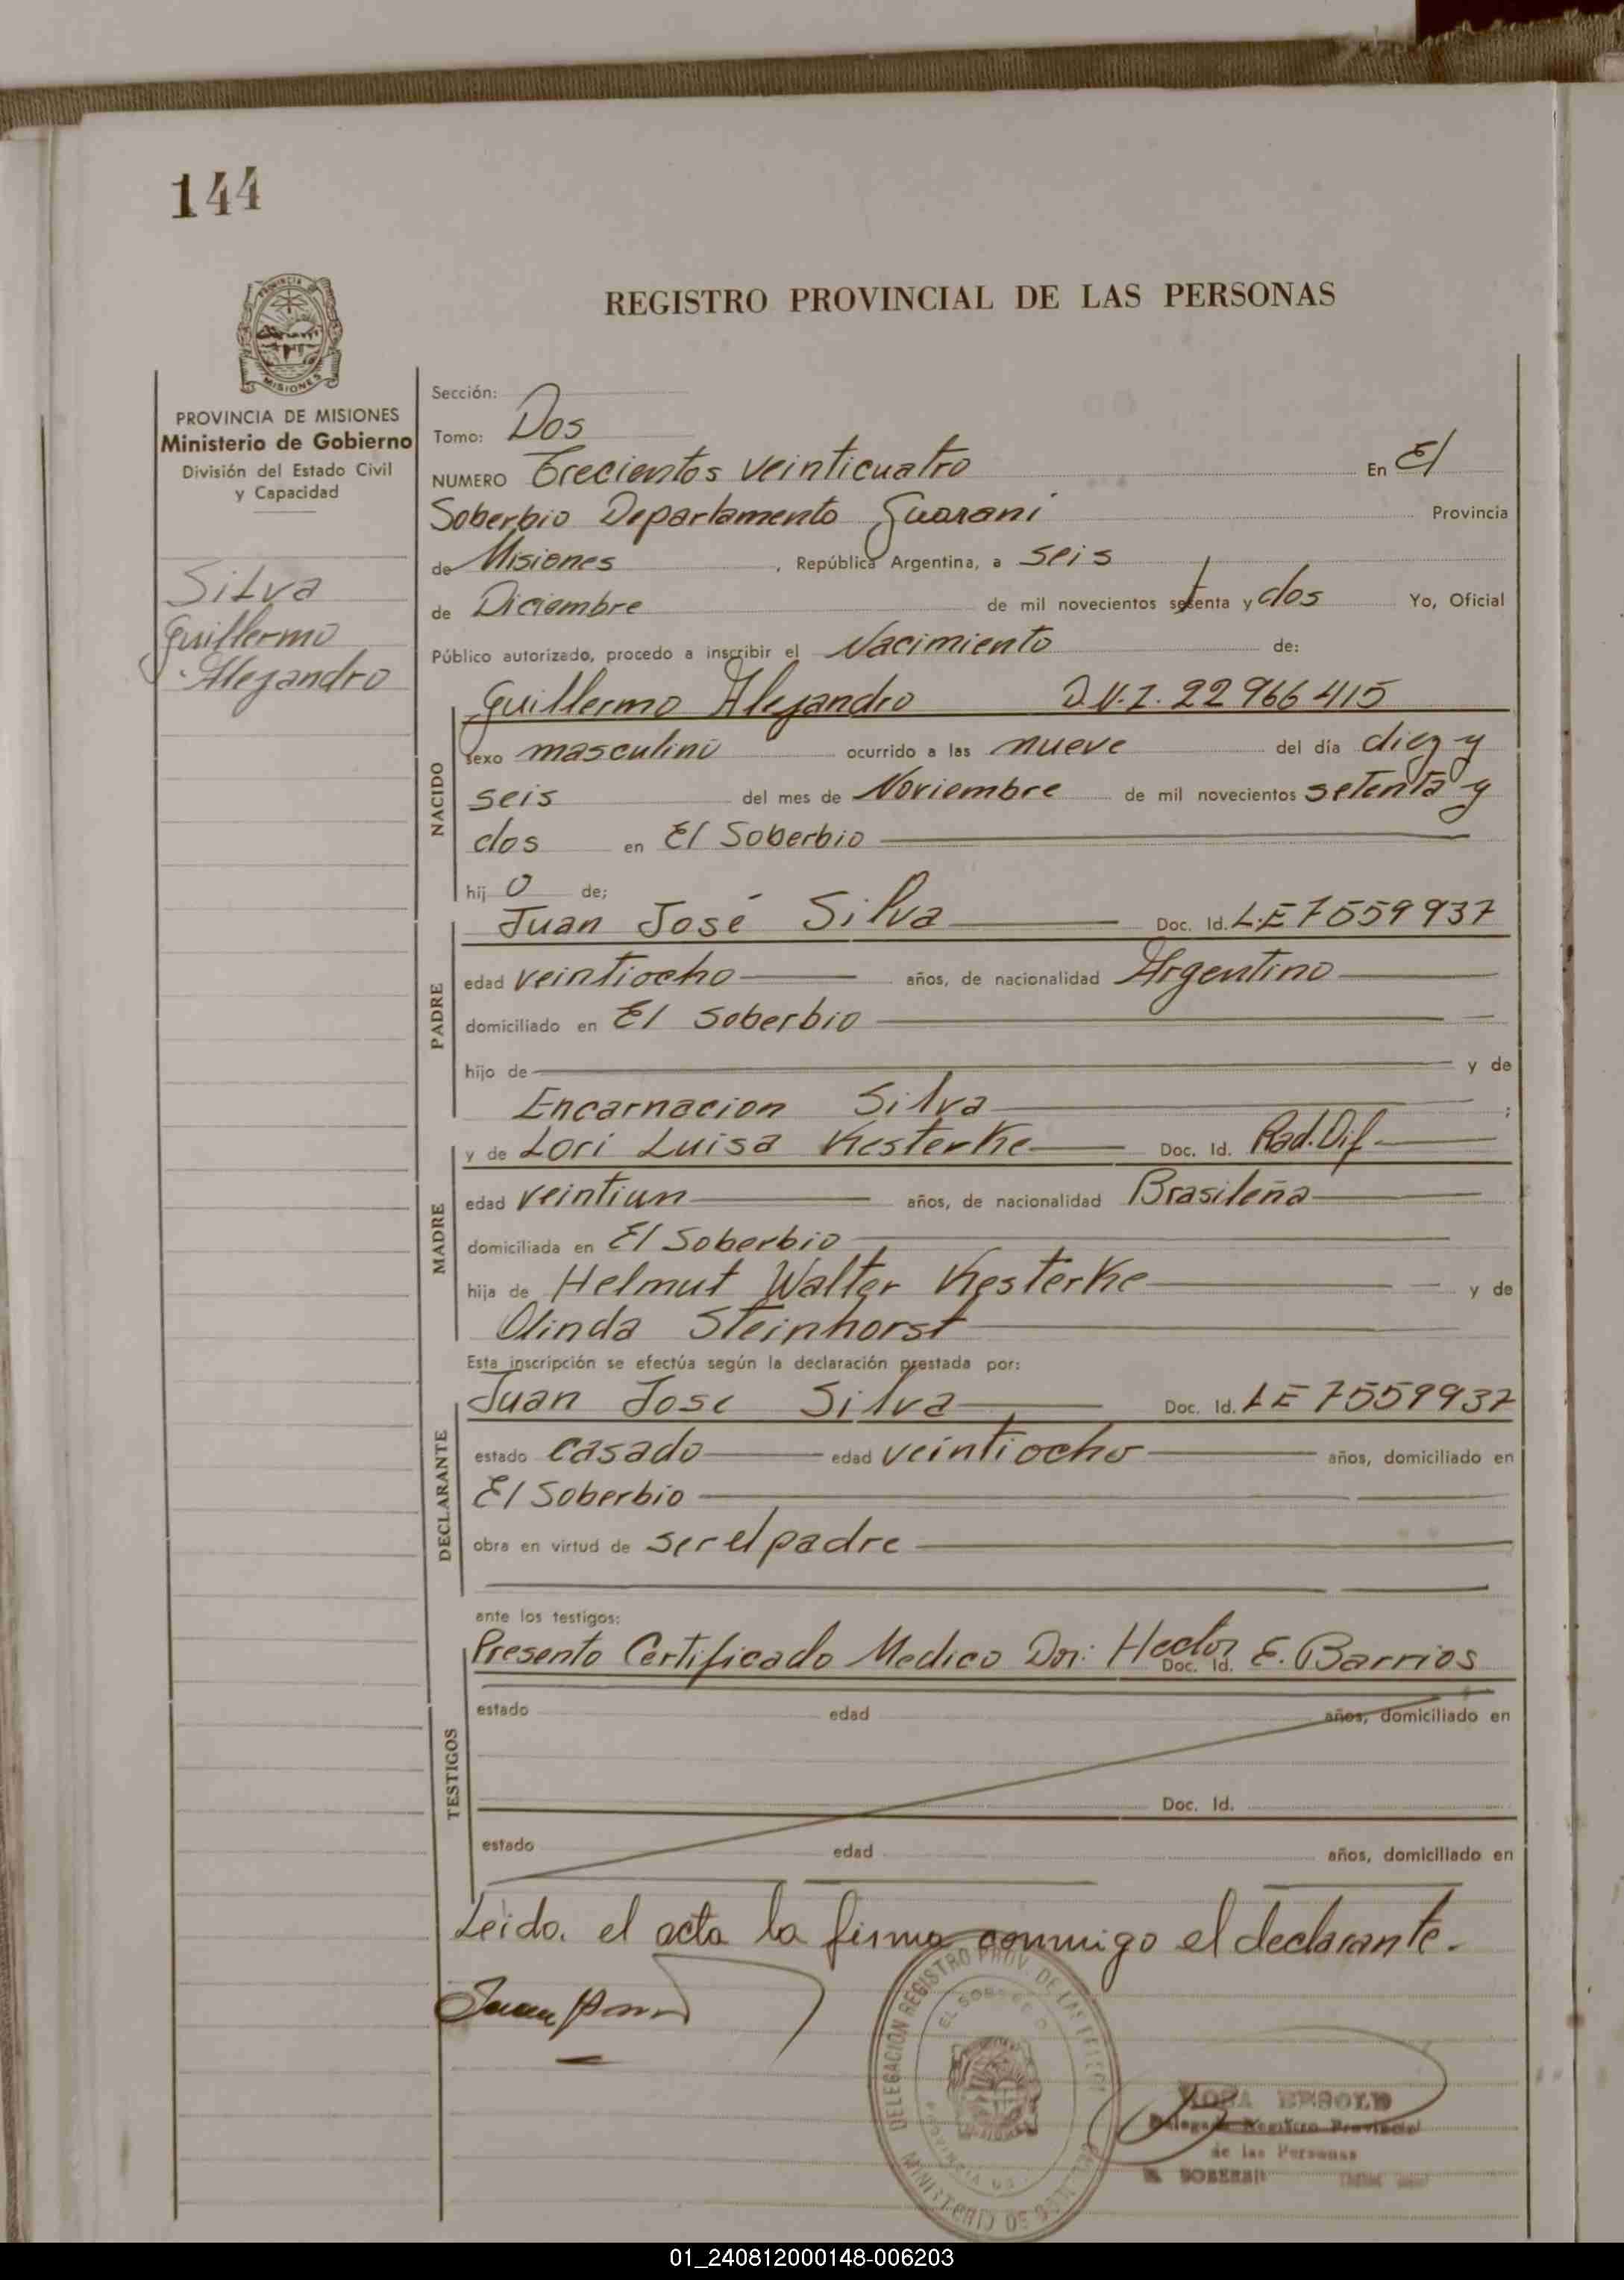 144
REGISTRO PROVINCIAL DE LAS PERSONAS
PROVINCIA DE MISIONES
Ministerio de Gobierno
División del Estado Civil
y Capacidad
Silva
Guillermo
Alejandro
Sección:
Tomo: Dos
NUMERO Trecientos veinticuatro En El
Soberbio Departamento Guarani Provincia
de Misiones, República Argentina, a seis
de Diciembre de mil novecientos setenta y dos Yo, Oficial
Público autorizado, procedo a inscribir el Nacimiento de:
NACIDO
Guillermo Alejandro D.N.I. 22966415
sexo masculino ocurrido a las nueve del día diez y
seis del mes de Noviembre de mil novecientos setenta y
dos en El Soberbio
hij o de;
PADRE
Juan José Silva Doc. Id. L.E 7559937
edad veintiocho años, de nacionalidad Argentino
domiciliado en El Soberbio
hijo de y de
Encarnacion Silva ;
MADRE
y de Lori Luisa Kesterke Doc. Id. Rad. Dif.
edad veintiun años, de nacionalidad Brasileña
domiciliada en El Soberbio
hija de Helmut Walter Kesterke y de
Olinda Steinhorst
Esta inscripción se efectúa según la declaración prestada por:
DECLARANTE
Juan Jose Silva Doc. Id. LE 7559937
estado casado edad veintiocho años, domiciliado en
El Soberbio
obra en virtud de ser el padre
ante los testigos:
TESTIGOS
Presento Certificado Medico Dor: Hector E. Barrios
Doc. Id.
estado edad años, domiciliado en
Doc. Id.
estado edad años, domiciliado en
Leido. el acta la firma conmigo el declarante.
DELEGACION REGISTRO PROV. DE LAS
EL SOBERBIO
PROVINCIA DE
MINISTERIO DE
ROSA BESOLD
Delegada Registro Provincial
de las Personas
EL SOBERBIO
01_240812000148-006203